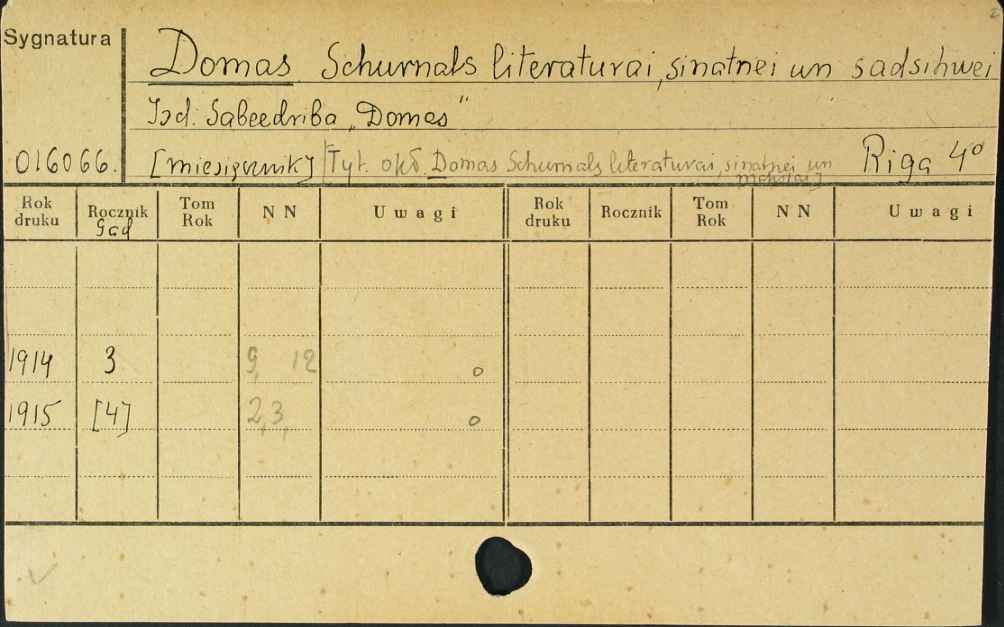 2
Sygnatura
Domas Schurnals literaturai, sinatnei un sadsihwei
Isd: Sabeedriba „Domas"
016066. [miesięcznik] [Tyt. okł. Domas Schurnals literaturai, sinatnei un Riga 4º
Rok druku Rocznik Tom Rok N N Uwagi Rok druku Rocznik Tom Rok N N Uwagi
Gad
1914 3 9, 12 o
1915 [4] 2, 3, o